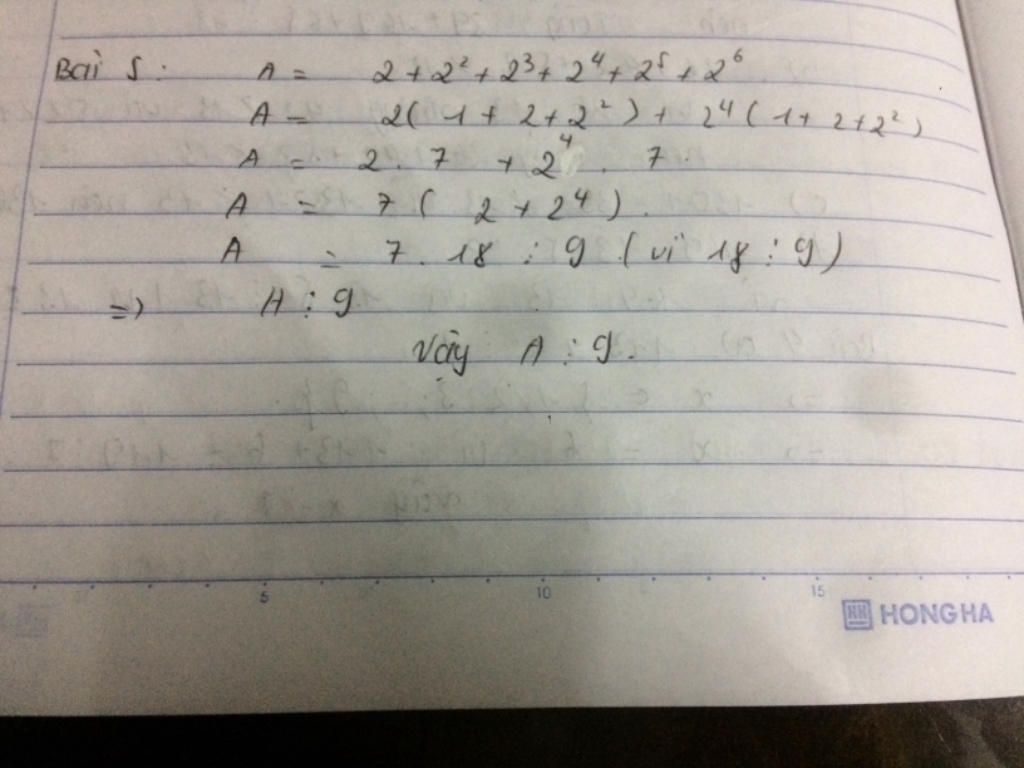 Bài 5: A = 2 + 2² + 2³ + 2⁴ + 2⁵ + 2⁶
A = 2( 1 + 2 + 2² ) + 2⁴ ( 1 + 2 + 2² )
A = 2 . 7 + 2⁴ . 7.
A = 7 ( 2 + 2⁴ ).
A = 7 . 18 ⋮ 9 ( vì 18 ⋮ 9 )
=> A ⋮ 9
Vậy A ⋮ 9.
5 10 15
HH HONG HA